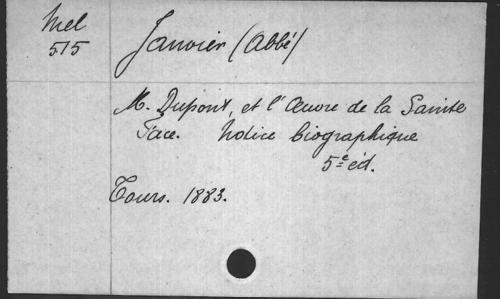 Mel
515
Janvier (Abbé)
M. Dupont, et l'Œuvre de la Sainte
Face. Notice biographique
5e éd.
Tours. 1883.